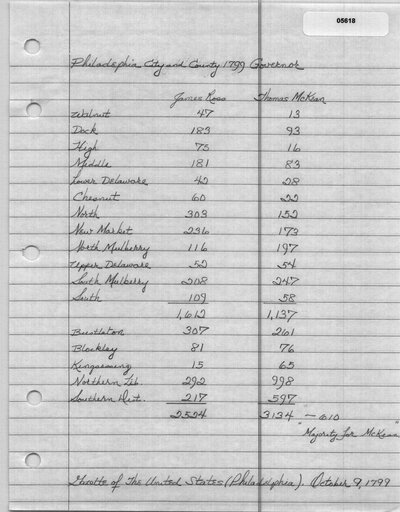 05618
Philadelphia City and County 1799 Governor
James Ross Thomas McKean
Walnut 47 13
Dock 183 93
High 75 16
Middle 181 83
Lower Delaware 42 28
Chesnut 60 22
North 303 152
New Market 236 173
North Mulberry 116 197
Upper Delaware 52 54
South Mulberry 208 247
South 109 58
1,612 1,137
Bustleton 307 261
Blockley 81 76
Kingsessing 15 65
Northern Lib. 292 998
Southern Dist. 217 597
2524 3134 — 610
"Majority for McKean"
Gazette of The United States (Philadelphia). October 9, 1799